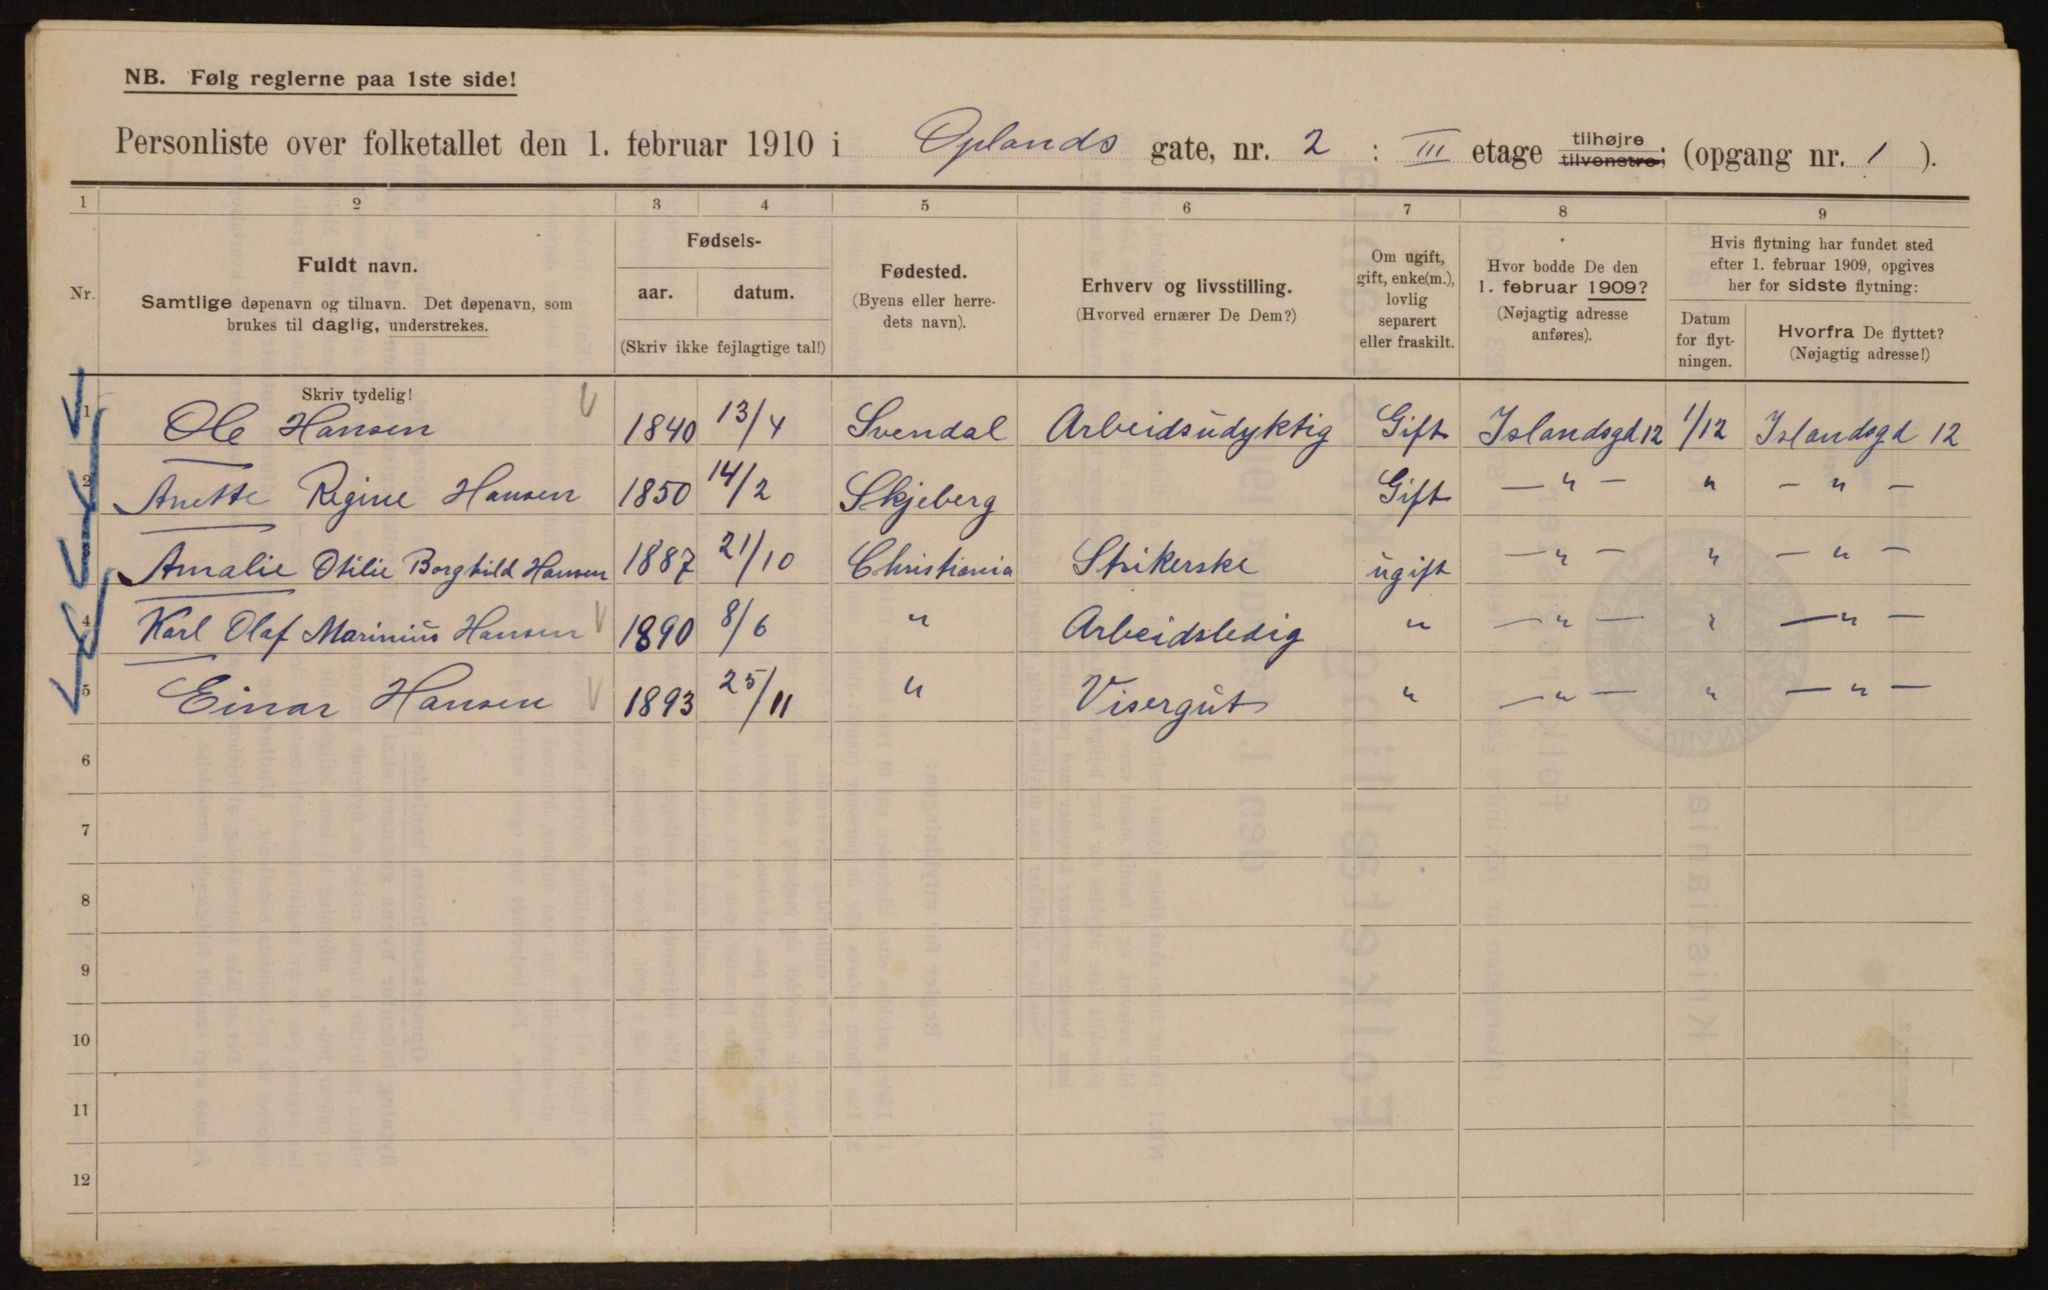 NB. Følg reglerne paa 1ste side!
Personliste over folketallet den 1. februar 1910 i Oplands gate, nr. 2 : III etage tilhøjre tilvenstre; (opgang nr. 1 ).
1 2 3 4 5 6 7 8 9
Nr.
Fuldt navn.
Samtlige døpenavn og tilnavn. Det døpenavn, som
brukes til daglig, understrekes.
Skriv tydelig!
Fødsels-
aar. datum.
(Skriv ikke fejlagtige tal!)
Fødested.
(Byens eller herre-
dets navn).
Erhverv og livsstilling.
(Hvorved ernærer De Dem?)
Om ugift,
gift, enke(m.),
lovlig
separert
eller fraskilt.
Hvor bodde De den
1. februar 1909?
(Nøjagtig adresse
anføres).
Hvis flytning har fundet sted
efter 1. februar 1909, opgives
her for sidste flytning:
Datum
for flyt-
ningen.
Hvorfra De flyttet?
(Nøjagtig adresse!)
1 Ole Hansen 1840 13/4 Svendal Arbeidsudyktig Gift Islandsgd 12 1/12 Islandsgd 12
2 Anette Regine Hansen 1850 14/2 Skjeberg Gift — " — " — " —
3 Amalie Otilie Borghild Hansen 1887 21/10 Christiania Strikerske ugift — " — " — " —
4 Karl Olaf Marinius Hansen 1890 8/6 " Arbeidsledig " — " — " — " —
5 Einar Hansen 1893 25/11 " Visergut " — " — " — " —
6
7
8
9
10
11
12